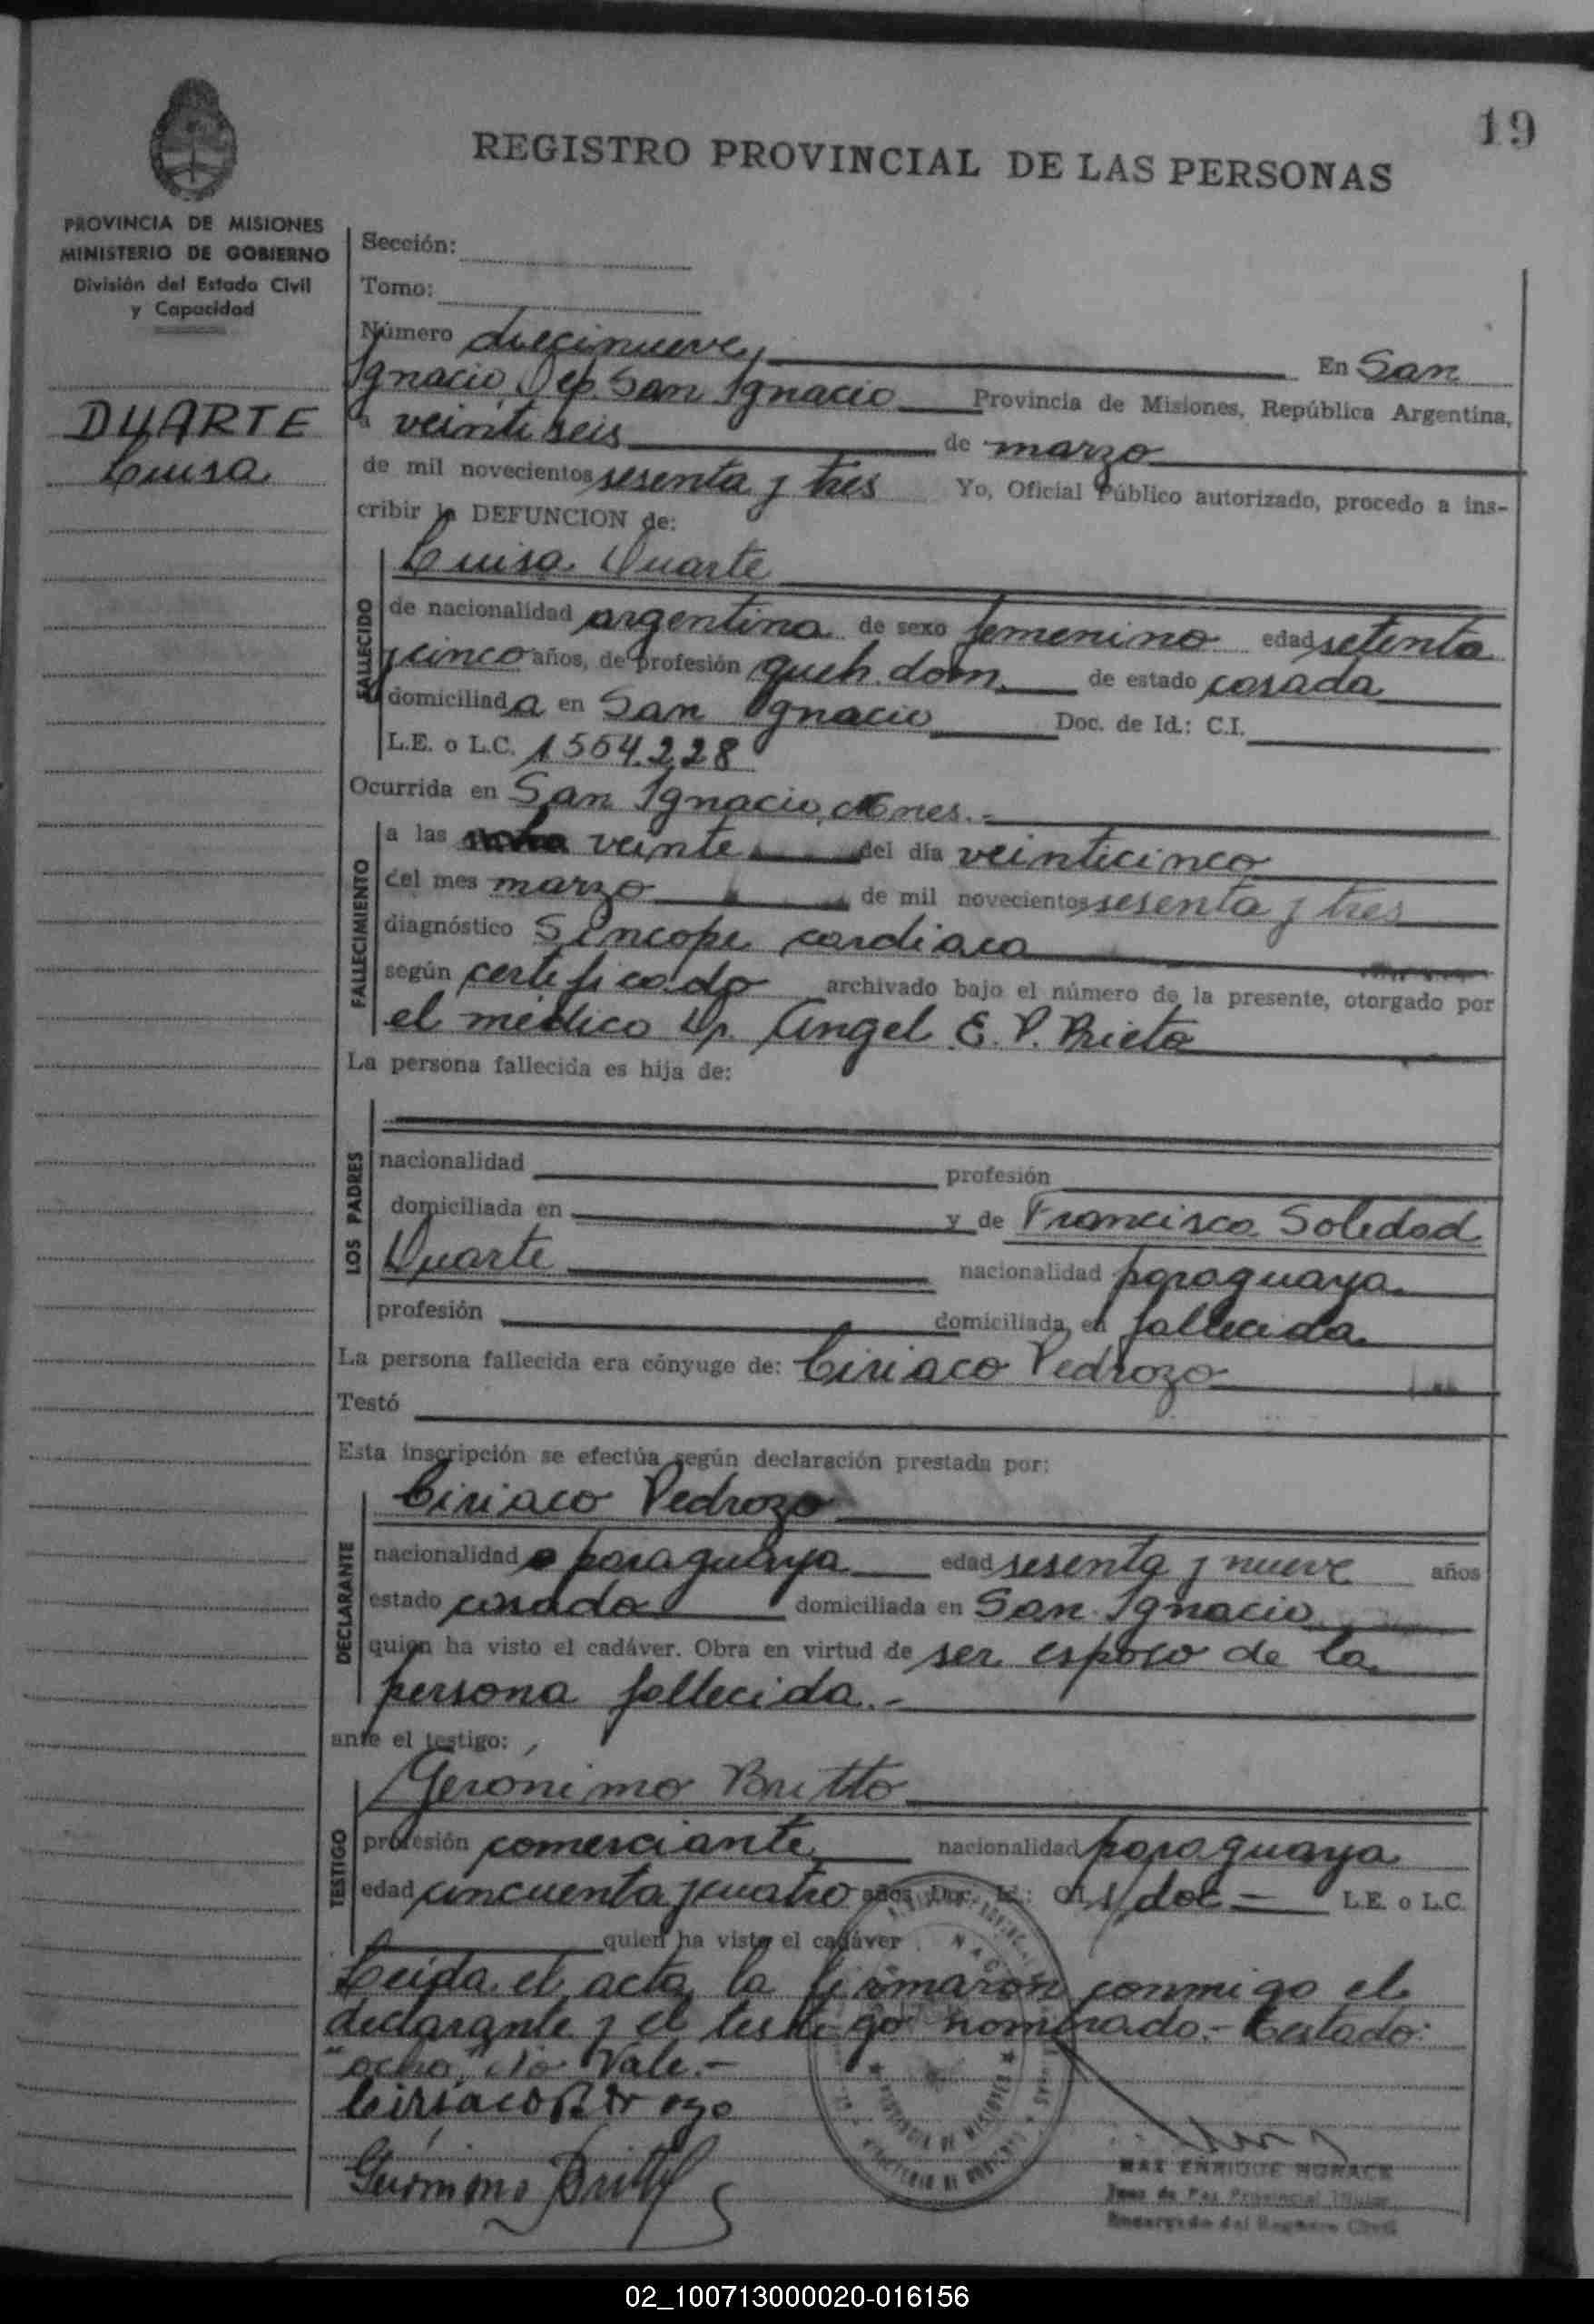 19
REGISTRO PROVINCIAL DE LAS PERSONAS
PROVINCIA DE MISIONES
MINISTERIO DE GOBIERNO
División del Estado Civil
y Capacidad
DUARTE
Luisa
Sección:
Tomo:
Número diecinueve En San
Ignacio, Dep. San Ignacio Provincia de Misiones, República Argentina,
a veintiseis de marzo
de mil novecientos sesenta y tres Yo, Oficial Público autorizado, procedo a ins-
cribir la DEFUNCION de:
Luisa Duarte
FALLECIDO
de nacionalidad argentina de sexo femenino edad setenta
y cinco años, de profesión queh. dom. de estado casada
domiciliada en San Ignacio Doc. de Id.: C.I.
L.E. o L.C. 1554.228
Ocurrida en San Ignacio, Mnes.-
FALLECIMIENTO
a las ocho veinte del día veinticinco
del mes marzo de mil novecientos sesenta y tres
diagnóstico Síncope cardiaco
según certificado archivado bajo el número de la presente, otorgado por
el médico Dr. Angel E. P. Prieto
La persona fallecida es hija de:
LOS PADRES
nacionalidad profesión
domiciliada en y de Francisca Soledad
Duarte nacionalidad paraguaya
profesión domiciliada en fallecida
La persona fallecida era cónyuge de: Ciriaco Pedrozo
Testó
Esta inscripción se efectúa según declaración prestada por:
Ciriaco Pedrozo
DECLARANTE
nacionalidad paraguaya edad sesenta y nueve años
estado casado domiciliada en San Ignacio
quien ha visto el cadáver. Obra en virtud de ser esposo de la
persona fallecida.-
ante el testigo:
Gerónimo Britto
TESTIGO
profesión comerciante nacionalidad paraguaya
edad cincuenta y cuatro años Doc. Id.: C.I. s/doc - L.E. o L.C.
quien ha visto el cadáver
Leída el acta la firmaron conmigo el
declarante y el testigo nombrado.- Testado:
"ocho" No Vale.-
Ciriaco Pedrozo
Gerónimo Britto
PROVINCIA DE MISIONES
MINISTERIO DE GOBIERNO
MAX ENRIQUE NORACK
Juez de Paz Provincial Titular
Encargado del Registro Civil
02_100713000020-016156